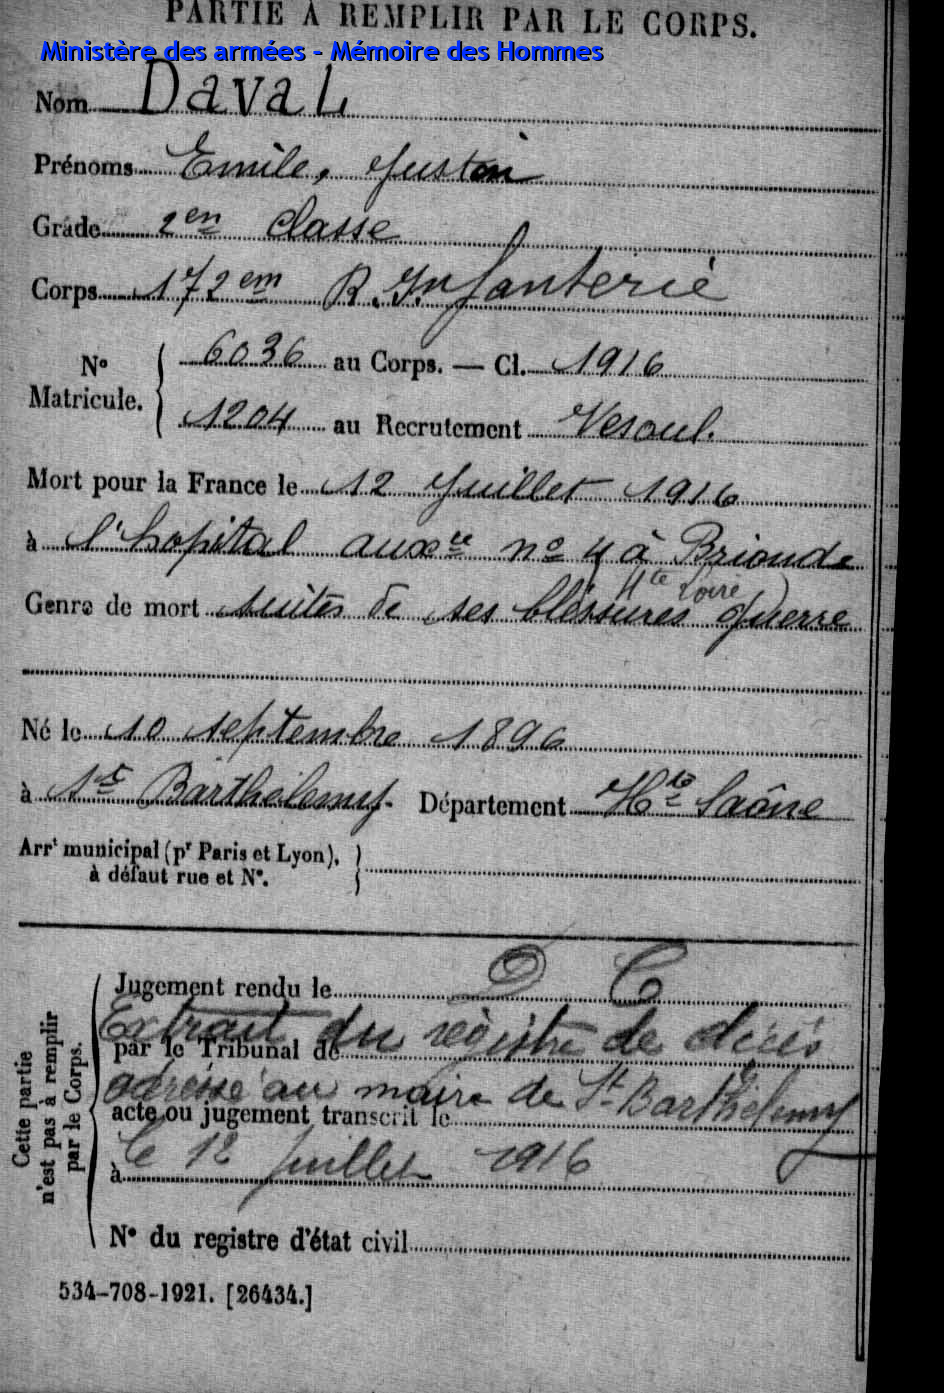 PARTIE À REMPLIR PAR LE CORPS.
Ministère des armées - Mémoire des Hommes
Nom Daval
Prénoms Emile, Justin
Grade 2en classe
Corps 172em R. Infanterie
N° Matricule. { 6036 au Corps. — Cl. 1916
1204 au Recrutement Vesoul.
Mort pour la France le 12 Juillet 1916
à l'hopital auxre n° 4 à Brioude
(Hte Loire)
Genre de mort suites de ses bléssures guerre
Né le 10 septembre 1896
à St Barthélemy. Département Hte Saône
Arrt municipal (pr Paris et Lyon), à défaut rue et N°. }
Cette partie n'est pas à remplir par le Corps.
Jugement rendu le D C
Extrait du registre de décès
par le Tribunal de
adressé au maire de St Barthélemy
acte ou jugement transcrit le
le 12 Juillet 1916
à
N° du registre d'état civil
534-708-1921. [26434.]